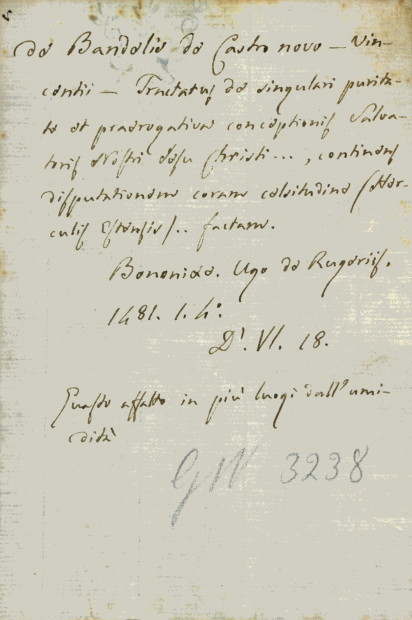 de Bandelis de Castro novo — Vin-
centii — Tractatus de singulari purita-
te et praerogativa conceptionis Salva-
toris Nostri Jesu Christi ..., continens
disputationem coram celsitudine (Her-
culis Estensis) .. factam.
Bononiae. Ugo de Rugeriis.
1481. 1. 4°.
D'. VI. 18.
Guasto affatto in più luoghi dall'umi-
dità
GW 3238